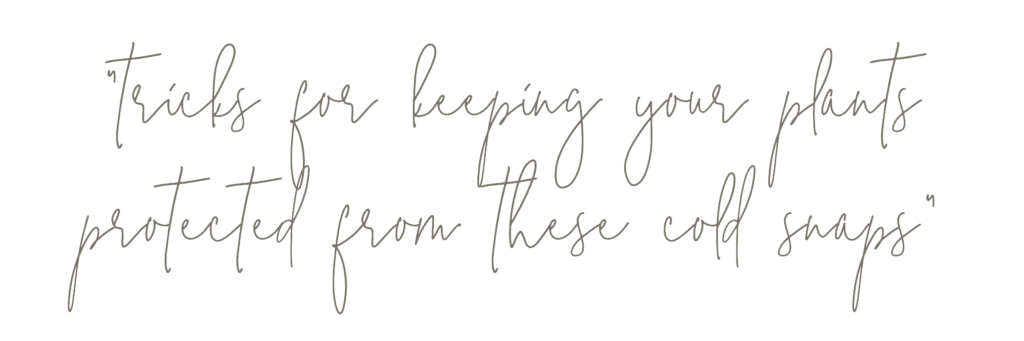 "tricks for keeping your plants
protected from these cold snaps"